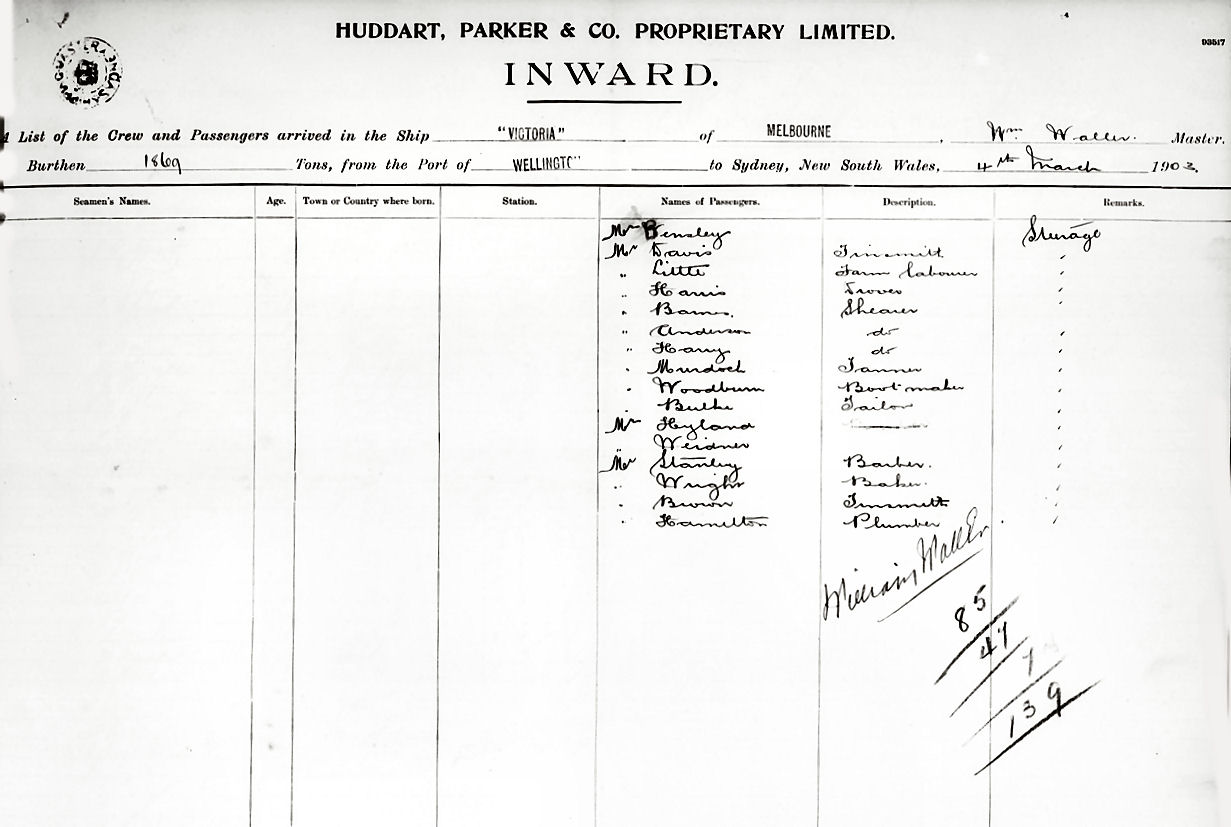 93517
HUDDART, PARKER & CO. PROPRIETARY LIMITED.
INWARD.
A List of the Crew and Passengers arrived in the Ship "VICTORIA" of MELBOURNE, Wm Waller. Master,
Burthen 1869 Tons, from the Port of WELLINGTO" to Sydney, New South Wales, 4th March 1903.
Seamen's Names. Age. Town or Country where born. Station. Names of Passengers. Description. Remarks.
Mr Bensley Steerage
Mr Davis Tinsmith "
" Little Farm labourer "
" Harris Drover "
" Barnes. Shearer "
" Anderson do "
" Harry do "
" Murdoch Tanner "
" Woodburn Bootmaker "
" Burke Tailor "
Mrs Heyland "
" Weidner "
Mr Stanley Barber. "
" Wright Baker. "
" Brown Tinsmith "
" Hamilton Plumber "
William Waller
85
47
7
139